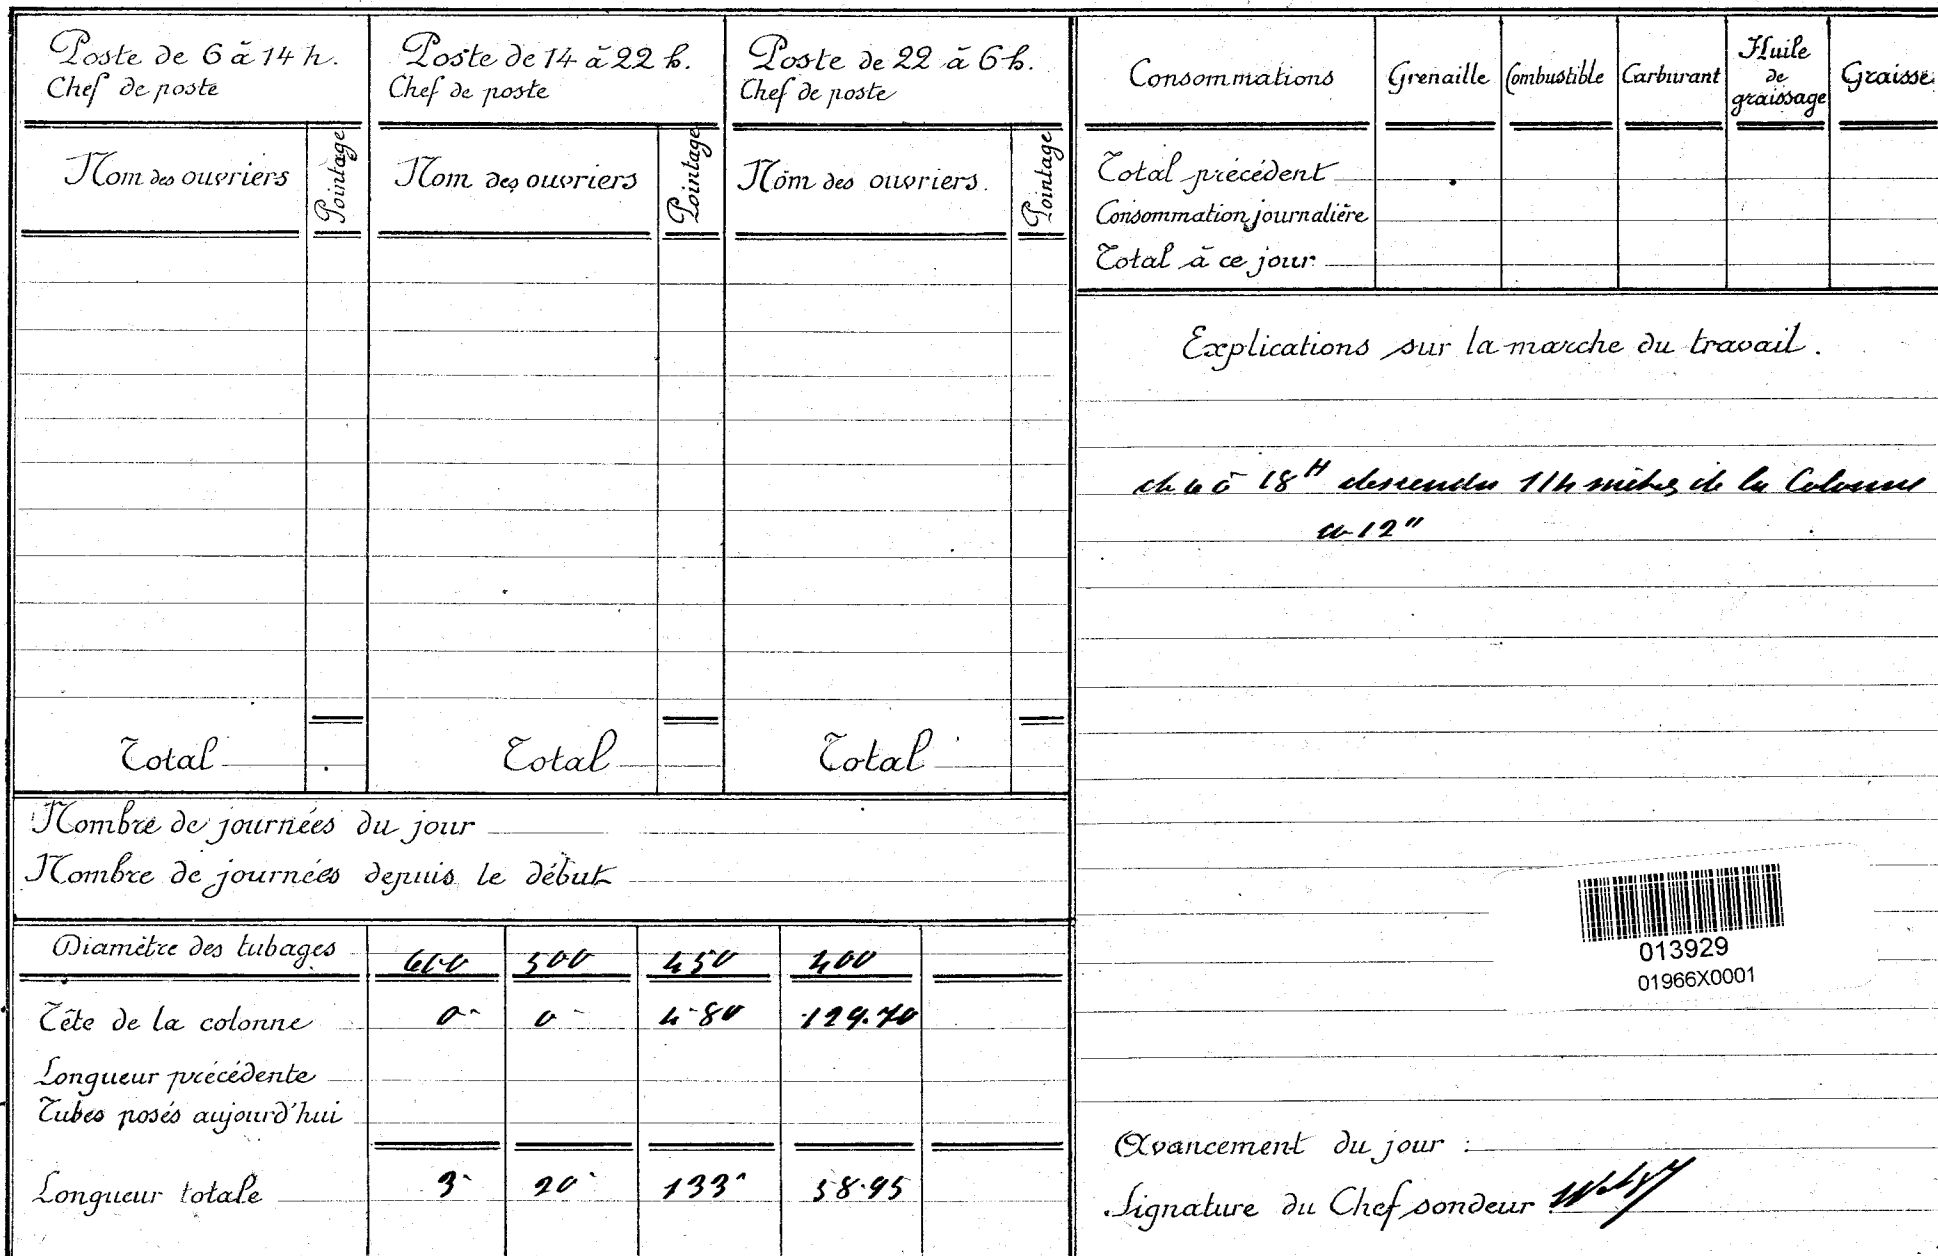 Poste de 6 à 14 h.
Chef de poste
Nom des ouvriers
Pointage
Total
Poste de 14 à 22 h.
Chef de poste
Nom des ouvriers
Pointage
Total
Poste de 22 à 6 h.
Chef de poste
Nom des ouvriers.
Pointage
Total
Nombre de journées du jour
Nombre de journées depuis le début
Diamètre des tubages 600 500 450 400
Tête de la colonne 0 0 4.80 129.70
Longueur précédente
Tubes posés aujourd'hui
Longueur totale 3 20 133 58.95
Consommations Grenaille Combustible Carburant Huile de graissage Graisse
Total précédent
Consommation journalière
Total à ce jour
Explications sur la marche du travail.
de 6 à 18H descendu 114 mètres de la Colonne
a 12"
013929
01966X0001
Avancement du jour :
Signature du Chef sondeur